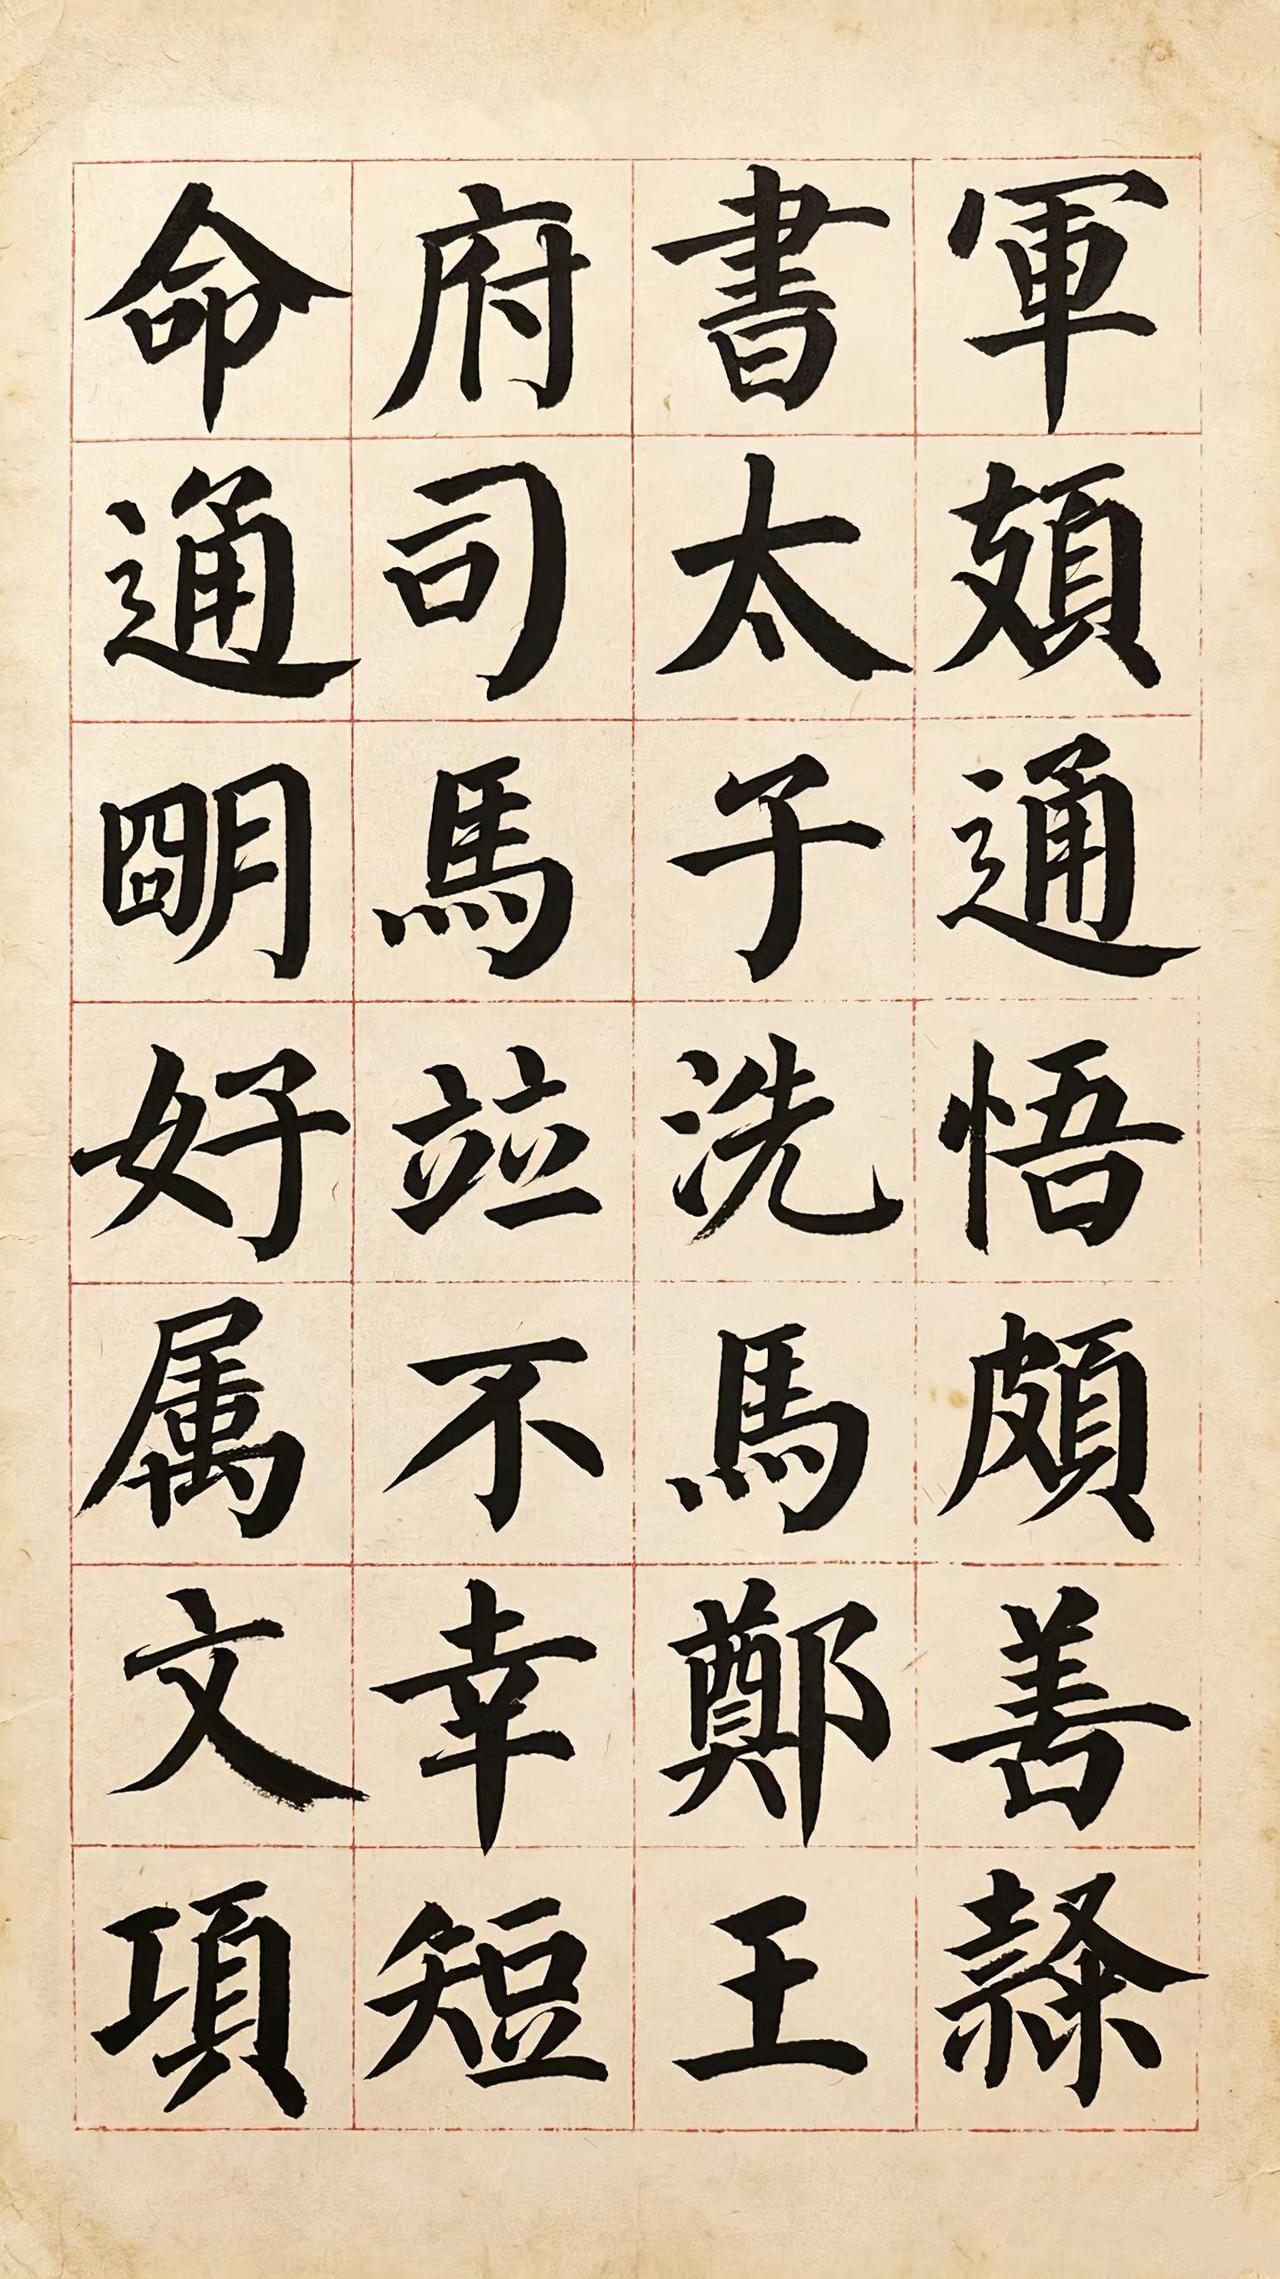 軍頍通悟頗善隸
書太子洗馬鄭王
府司馬竝不幸短
命通明好属文項